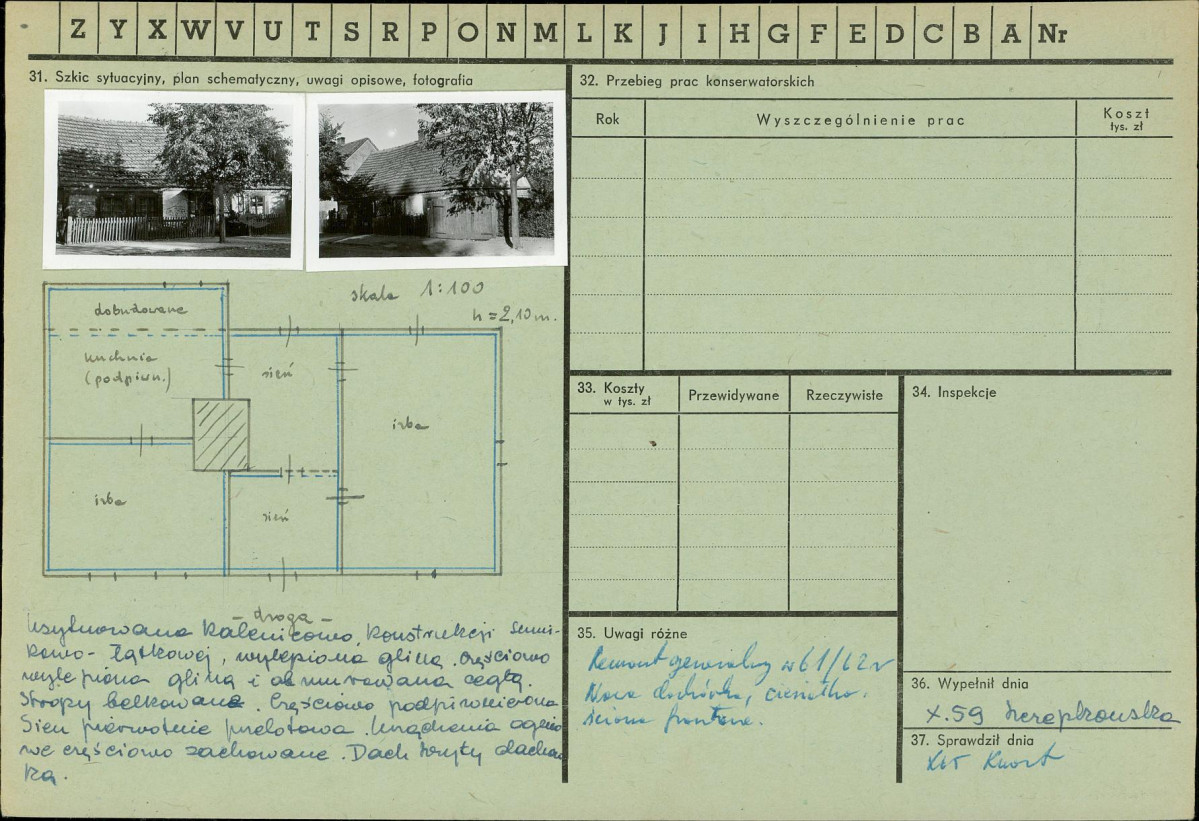 Z Y X W V U T S R P O N M L K J I H G F E D C B A Nr
31. Szkic sytuacyjny, plan schematyczny, uwagi opisowe, fotografia
skala 1:100
h = 2,10 m.
dobudowane
kuchnia
(podpiwn.)
sień
izba
izba
sień
- droga -
Usytuowana kalenicowo, konstrukcji sumi-
kowo-łątkowej, wylepiona gliną. Częściowo
wylepiona gliną i obmurowana cegłą.
Stropy belkowane. Częściowo podpiwniczona
Sień pierwotnie przelotowa. Urządzenia ognio
we częściowo zachowane. Dach kryty dachów
ką.
32. Przebieg prac konserwatorskich
Rok
Wyszczególnienie prac
Koszt
tys. zł
33. Koszty
w tys. zł
Przewidywane
Rzeczywiste
34. Inspekcje
35. Uwagi różne
Remont generalny w 61/62 r
Nowa dachówka,
ściana frontowa.
36. Wypełnił dnia
X.59
37. Sprawdził dnia